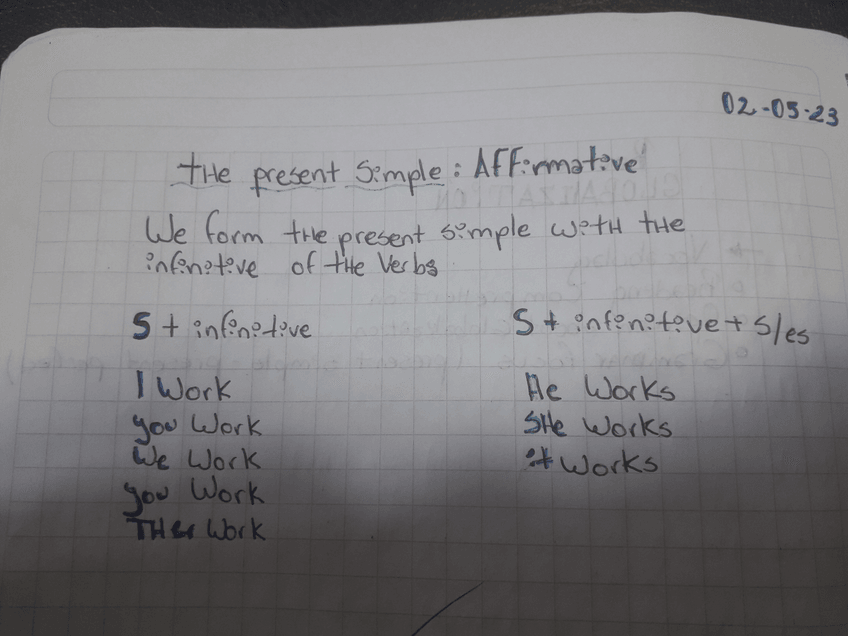 02-05-23
THe present Simple: Affirmative
We form the present simple with the
infinitive of the Verbs
S + infinitive
S + infinitive + s/es
I Work
He Works
you Work
SHe Works
We Work
it Works
you Work
Work